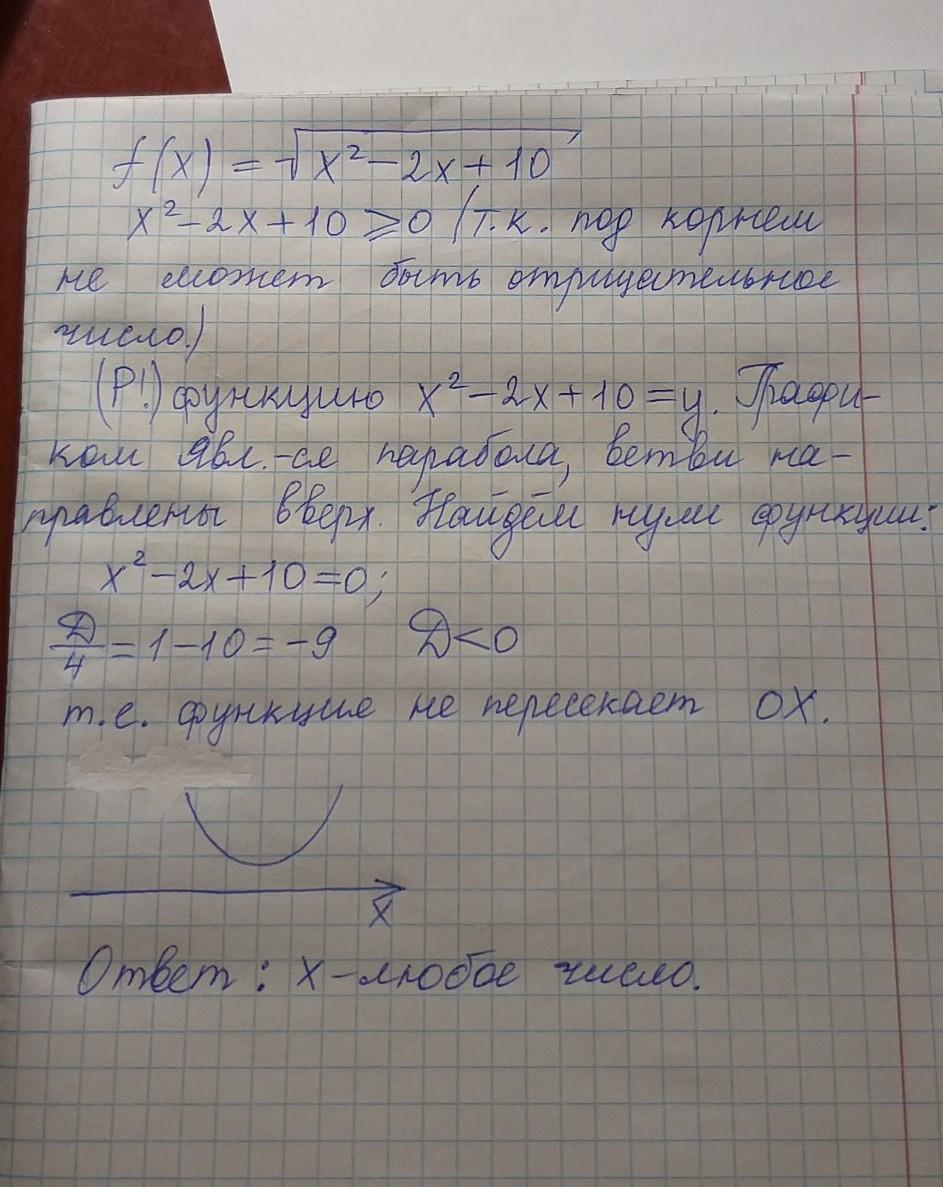 f(x) = √(x² − 2x + 10)
x² − 2x + 10 ⩾ 0 (т.к. под корнем
не может быть отрицательное
число.)
(Р!) функцию x² − 2x + 10 = y. Графи-
ком явл.-ся парабола, ветви на-
правлены вверх. Найдём нули функции:
x² − 2x + 10 = 0;
Д/4 = 1 − 10 = −9 Д < 0
т.е. функция не пересекает OX.
x
Ответ: x - любое число.